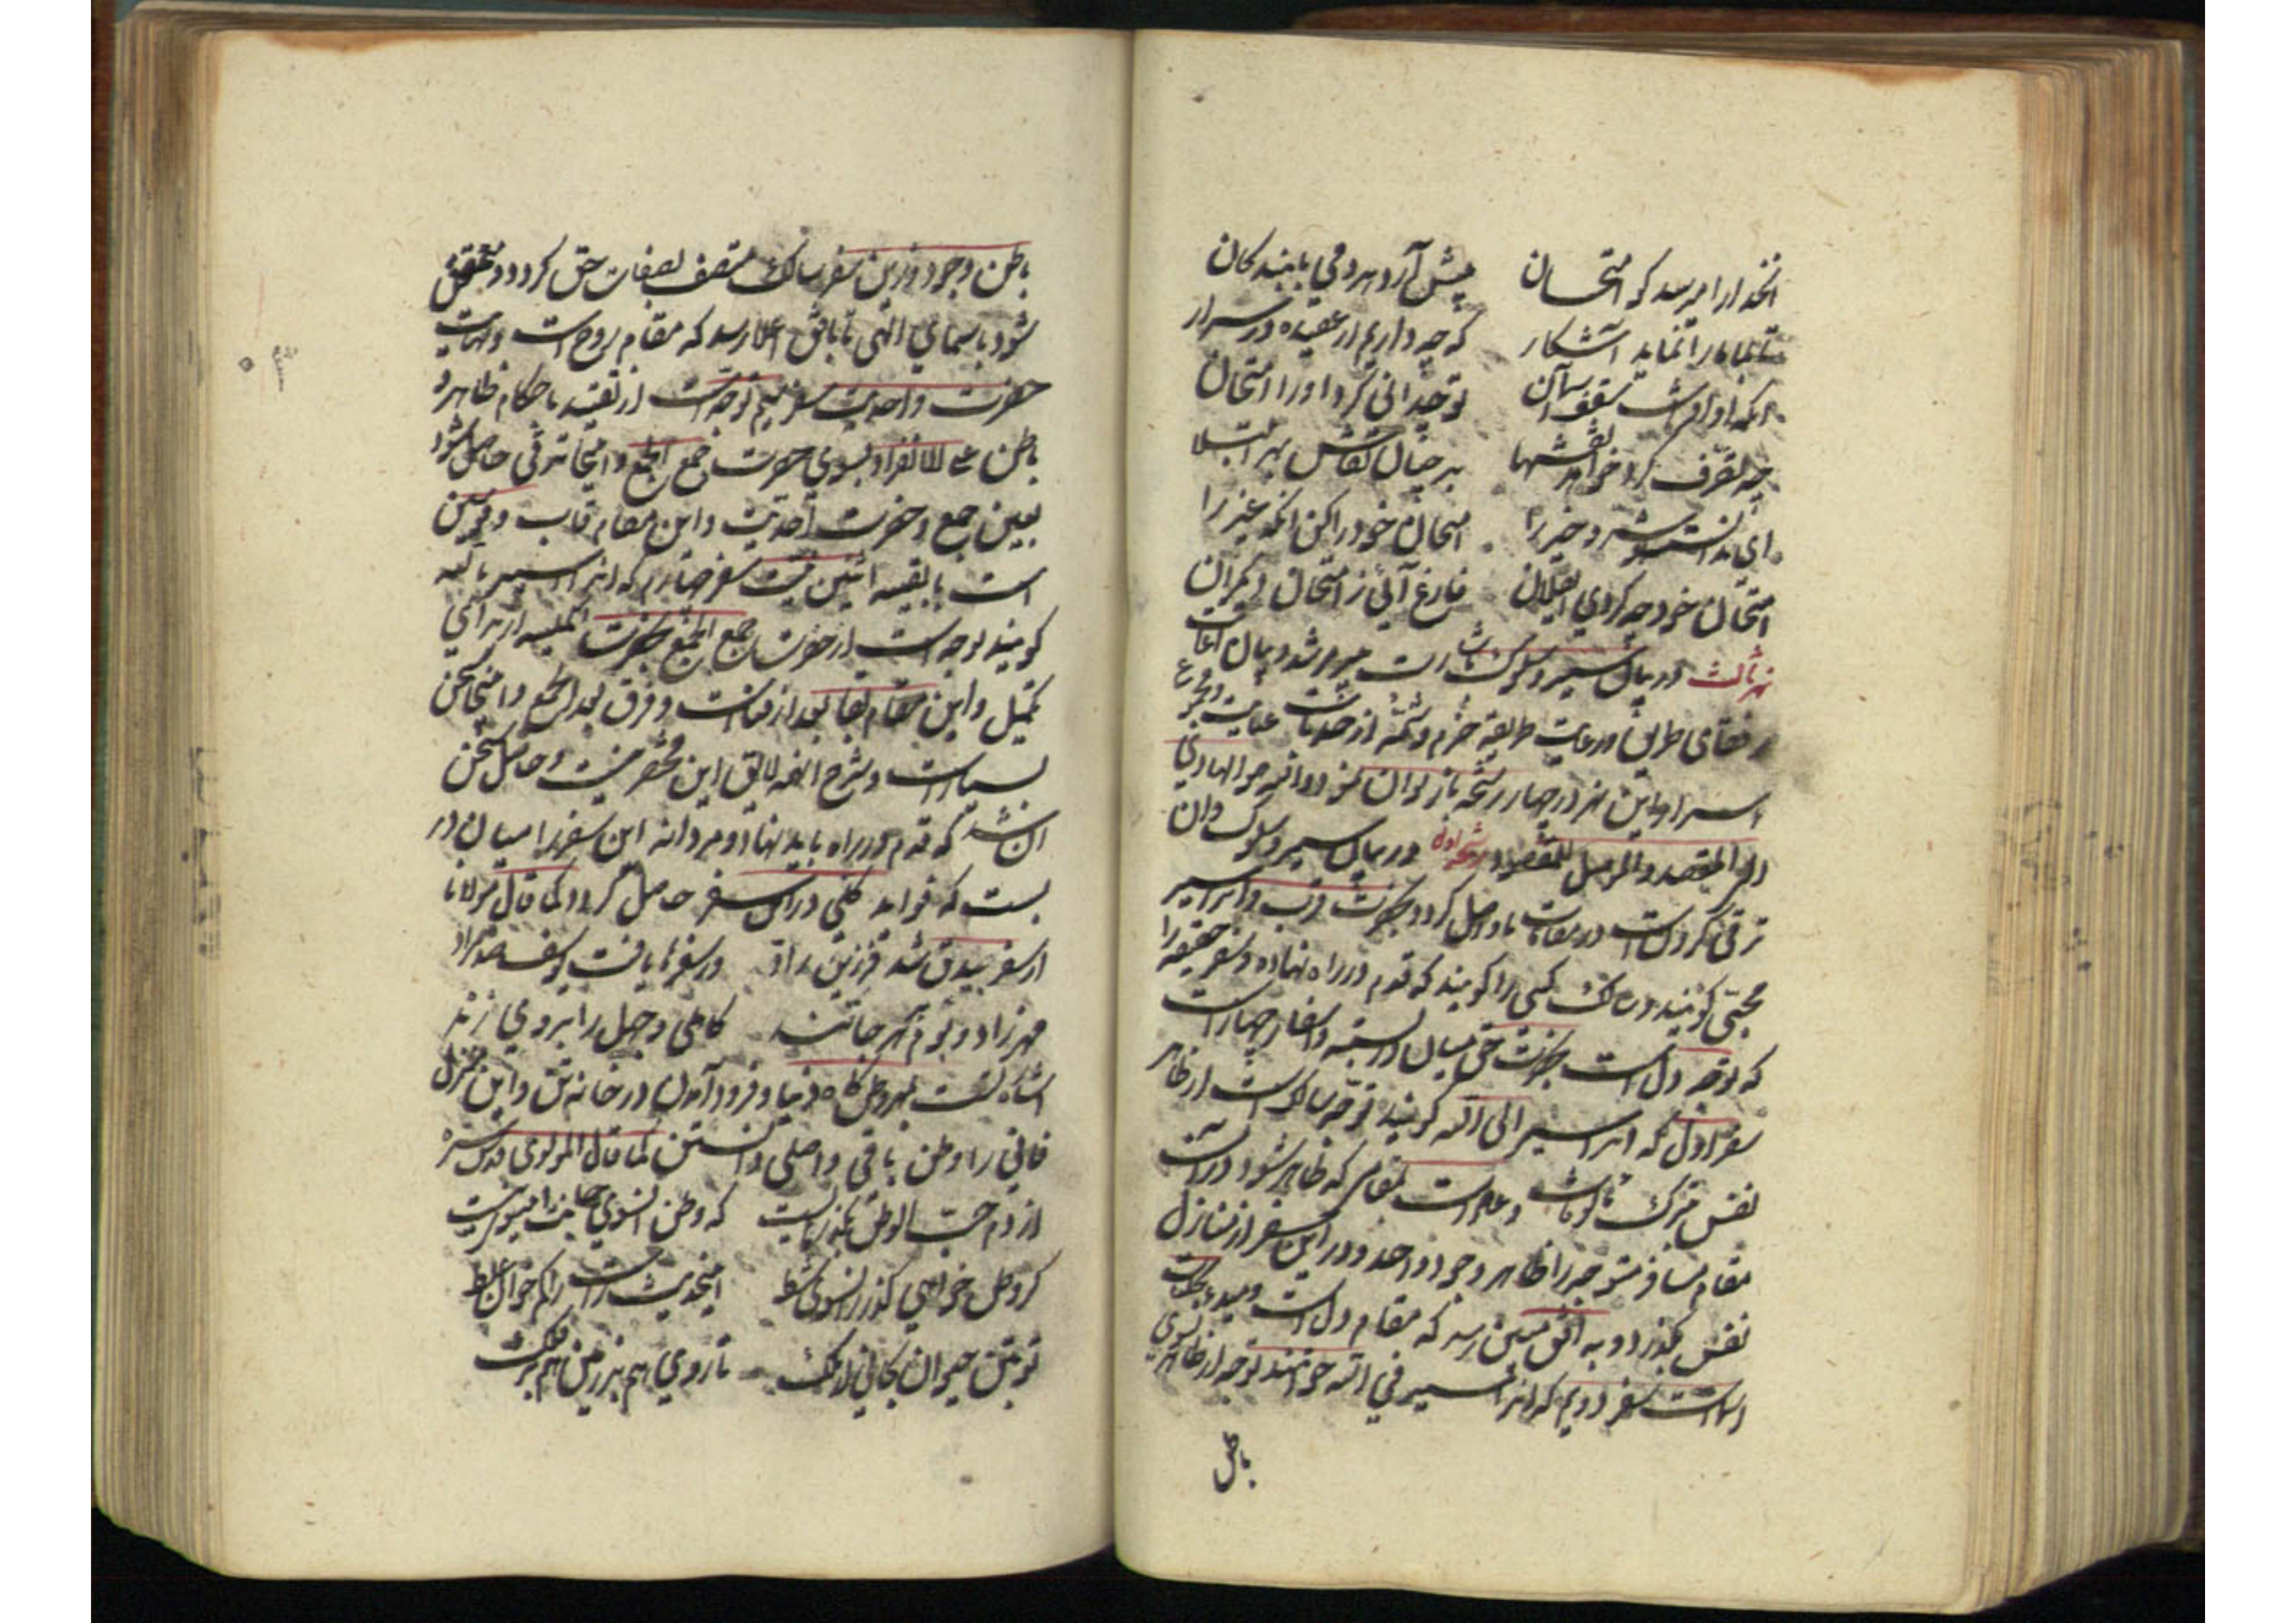 آنخدا را میرسد که امتحان پیش آرد هر دمی با بندگان
تا بما ما را نماید آشکار که چه داریم از عقیده در سرار
آنکه او افراشت سقف آسمان تو چه دانی کرد او را امتحان
چه تصرف کرد خواهد نقشها بر چنان نقاش بهر ابتلا
ای ندانسته تو شر و خیر را امتحان خود را کن آنگه غیر را
امتحان خود چو کردی ای فلان فارغ آئی ز امتحان دیگران
نهر ثالث در بیان سیر و سلوک است میر مرشد و بیان
رفقای طریق و رعایت طریقه حزم و از خدمات
اسرار این نهر در چهار رشحه باز توان نمود و الله هو الهادی
الی المقصد والموصل للمقصود رشحه اولی در بیان سیر و سلوک و آن
ترقی کردنست در مقامات تا واصل گردد بحضرت قرب و آنرا سیر
گویند و سالک کسی را گویند که قدم در راه نهاده و سفر حقیقی را
که توجه دل است بحضرت حق میان در بسته و اسفار چهار است
سفر اول که آنرا سیر الی الله گویند توجه سالک است از ظاهر
نفس بترک و علامت مقامی که ظاهر شود در آن
مقام مسافر متوجه را ظاهر وجود واحد و در این سفر از منازل
نفس بگذرد و به افق مبین رسد که مقام دل است
اسماست سفر دویم که آنرا سیر فی الله خوانند توجه از ظاهر بسوی
باطن
باطن وجود و درین سفر سالک متصف بصفات حق گردد و متحقق
شود باسمای الهی تا بافق اعلا رسد که مقام روح است و نهایت
حضرت واحدیت سفر سیم توجه است از تقید باحکام ظاهر و
باطن علی الانفراد بسوی حضرت جمع الجمع و اینجا ترقی حاصل شود
بعین جمع و حضرت احدیت و این مقام قاب قوسین
است با بقیه اثنینیت سفر چهارم که آنرا سیر بالله
گویند توجه است از حضرت جمع الجمع بحضرت از برای
تکمیل و این مقام بقا بعد از فناست و فرق بعد الجمع و اینجا سخن
بسیار است و شرح آنهمه لایق این مختصر نیست و حاصل سخن
آن شد که قدم در راه باید نهاد و مردانه این سفر را میان در
بست که فواید کلی در این سفر حاصل گردد کما قال مولانا
از سفر بیدق شد فرزین راد وز سفرها یافت یوسف صد مراد
کاملی و جمله را بروی زند
اشاه گشت وطن گاه دنیا و فرود آمدن در خانه تن و این منزل
فانی را وطن باقی و اصلی دانستن کما قال المولوی قدس سره
از دم حب الوطن بگذر مایست که وطن آنسوی جانست اینسو نیست
گر وطن خواهی گذر زانسوی شط اینحدیث راست را کم خوان غلط
تو بتن حیوان بجانی از ملک تا روی هم بر زمین هم بر فلک